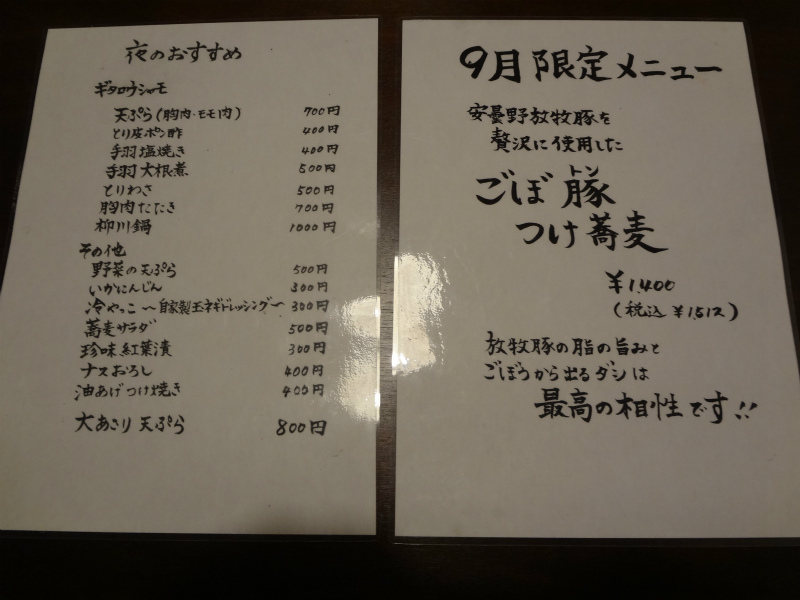 夜のおすすめ
ギタロウシャモ
天ぷら(胸肉・モモ肉) 700円
とり皮ポン酢 400円
手羽塩焼き 400円
手羽大根煮 500円
とりわさ 500円
胸肉たたき 700円
柳川鍋 1000円
その他
野菜の天ぷら 500円
いかにんじん 300円
冷やっこ 〜自家製玉ネギドレッシング〜 300円
蕎麦サラダ 500円
珍味 紅葉漬 300円
ナスおろし 400円
油あげつけ焼き 400円
大あさり天ぷら 800円
9月限定メニュー
安曇野放牧豚を
贅沢に使用した
トン
ごぼ豚
つけ蕎麦
¥1,400
(税込 ¥1,512)
放牧豚の脂の旨みと
ごぼうから出るダシは
最高の相性です!!